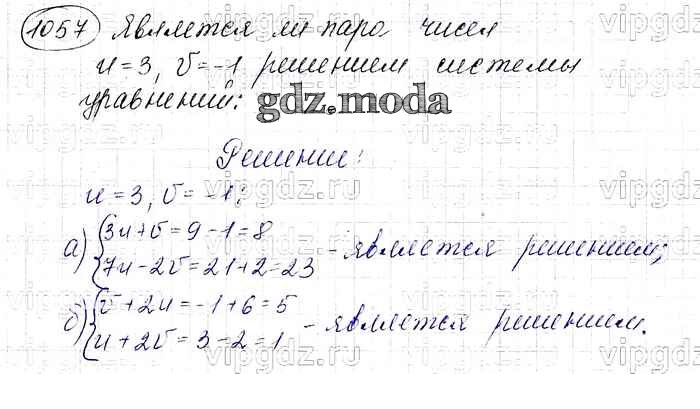 1057 Является ли пара чисел
u=3, v=-1 решением системы
уравнений:
gdz.moda
Решение:
u=3, v=-1:
а) {3u+v=9-1=8
{7u-2v=21+2=23 - является решением;
б) {v+2u=-1+6=5
{u+2v=3-2=1 - является решением.
vipgdz.ru